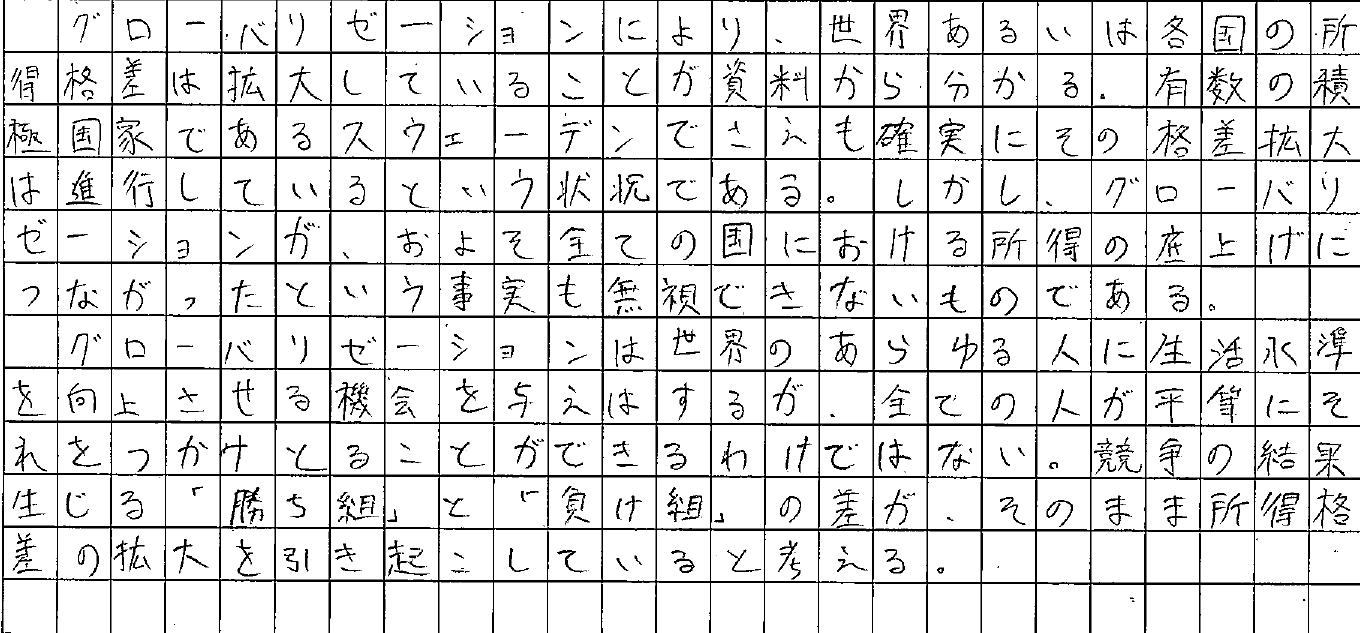 グローバリゼーションにより、世界あるいは各国の所
得格差は拡大していることが資料から分かる。有数の積
極国家であるスウェーデンでさえも確実にその格差拡大
は進行しているという状況である。しかし、グローバリ
ゼーションが、およそ全ての国における所得の底上げに
つながったという事実も無視できないものである。
グローバリゼーションは世界のあらゆる人に生活水準
を向上させる機会を与えはするが、全ての人が平等にそ
れをつかけとることができるわけではない。競争の結果
生じる「勝ち組」と「負け組」の差が、そのまま所得格
差の拡大を引き起こしていると考える。